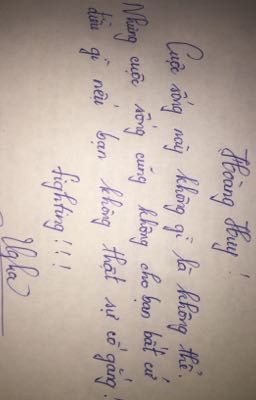 Hoàng Huy!
Cuộc sống này không gì là không thể.
Nhưng cuộc sống cũng không cho bạn bất cứ
điều gì nếu bạn không thật sự cố gắng!
fighting!!!
Nghĩa